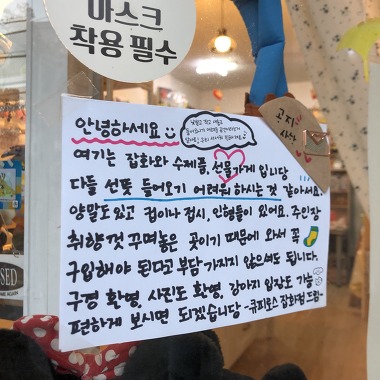 마스크
착용 필수
안녕하세요
여기는 잡화와 수제품, 선물가게 입니당
다들 선뜻 들어오기 어려워 하시는 것 같아서요.
양말도 있고 컵이나 접시, 인형들이 있어요. 주인장
취향껏 꾸며놓은 곳이기 때문에 와서 꼭
구입해야 된다고 부담 가지지 않으셔도 됩니다.
구경 환영, 사진도 환영, 강아지 입장도 가능
편하게 보시면 되겠습니당 -큐피로스 잡화점 드림-
공지
사항